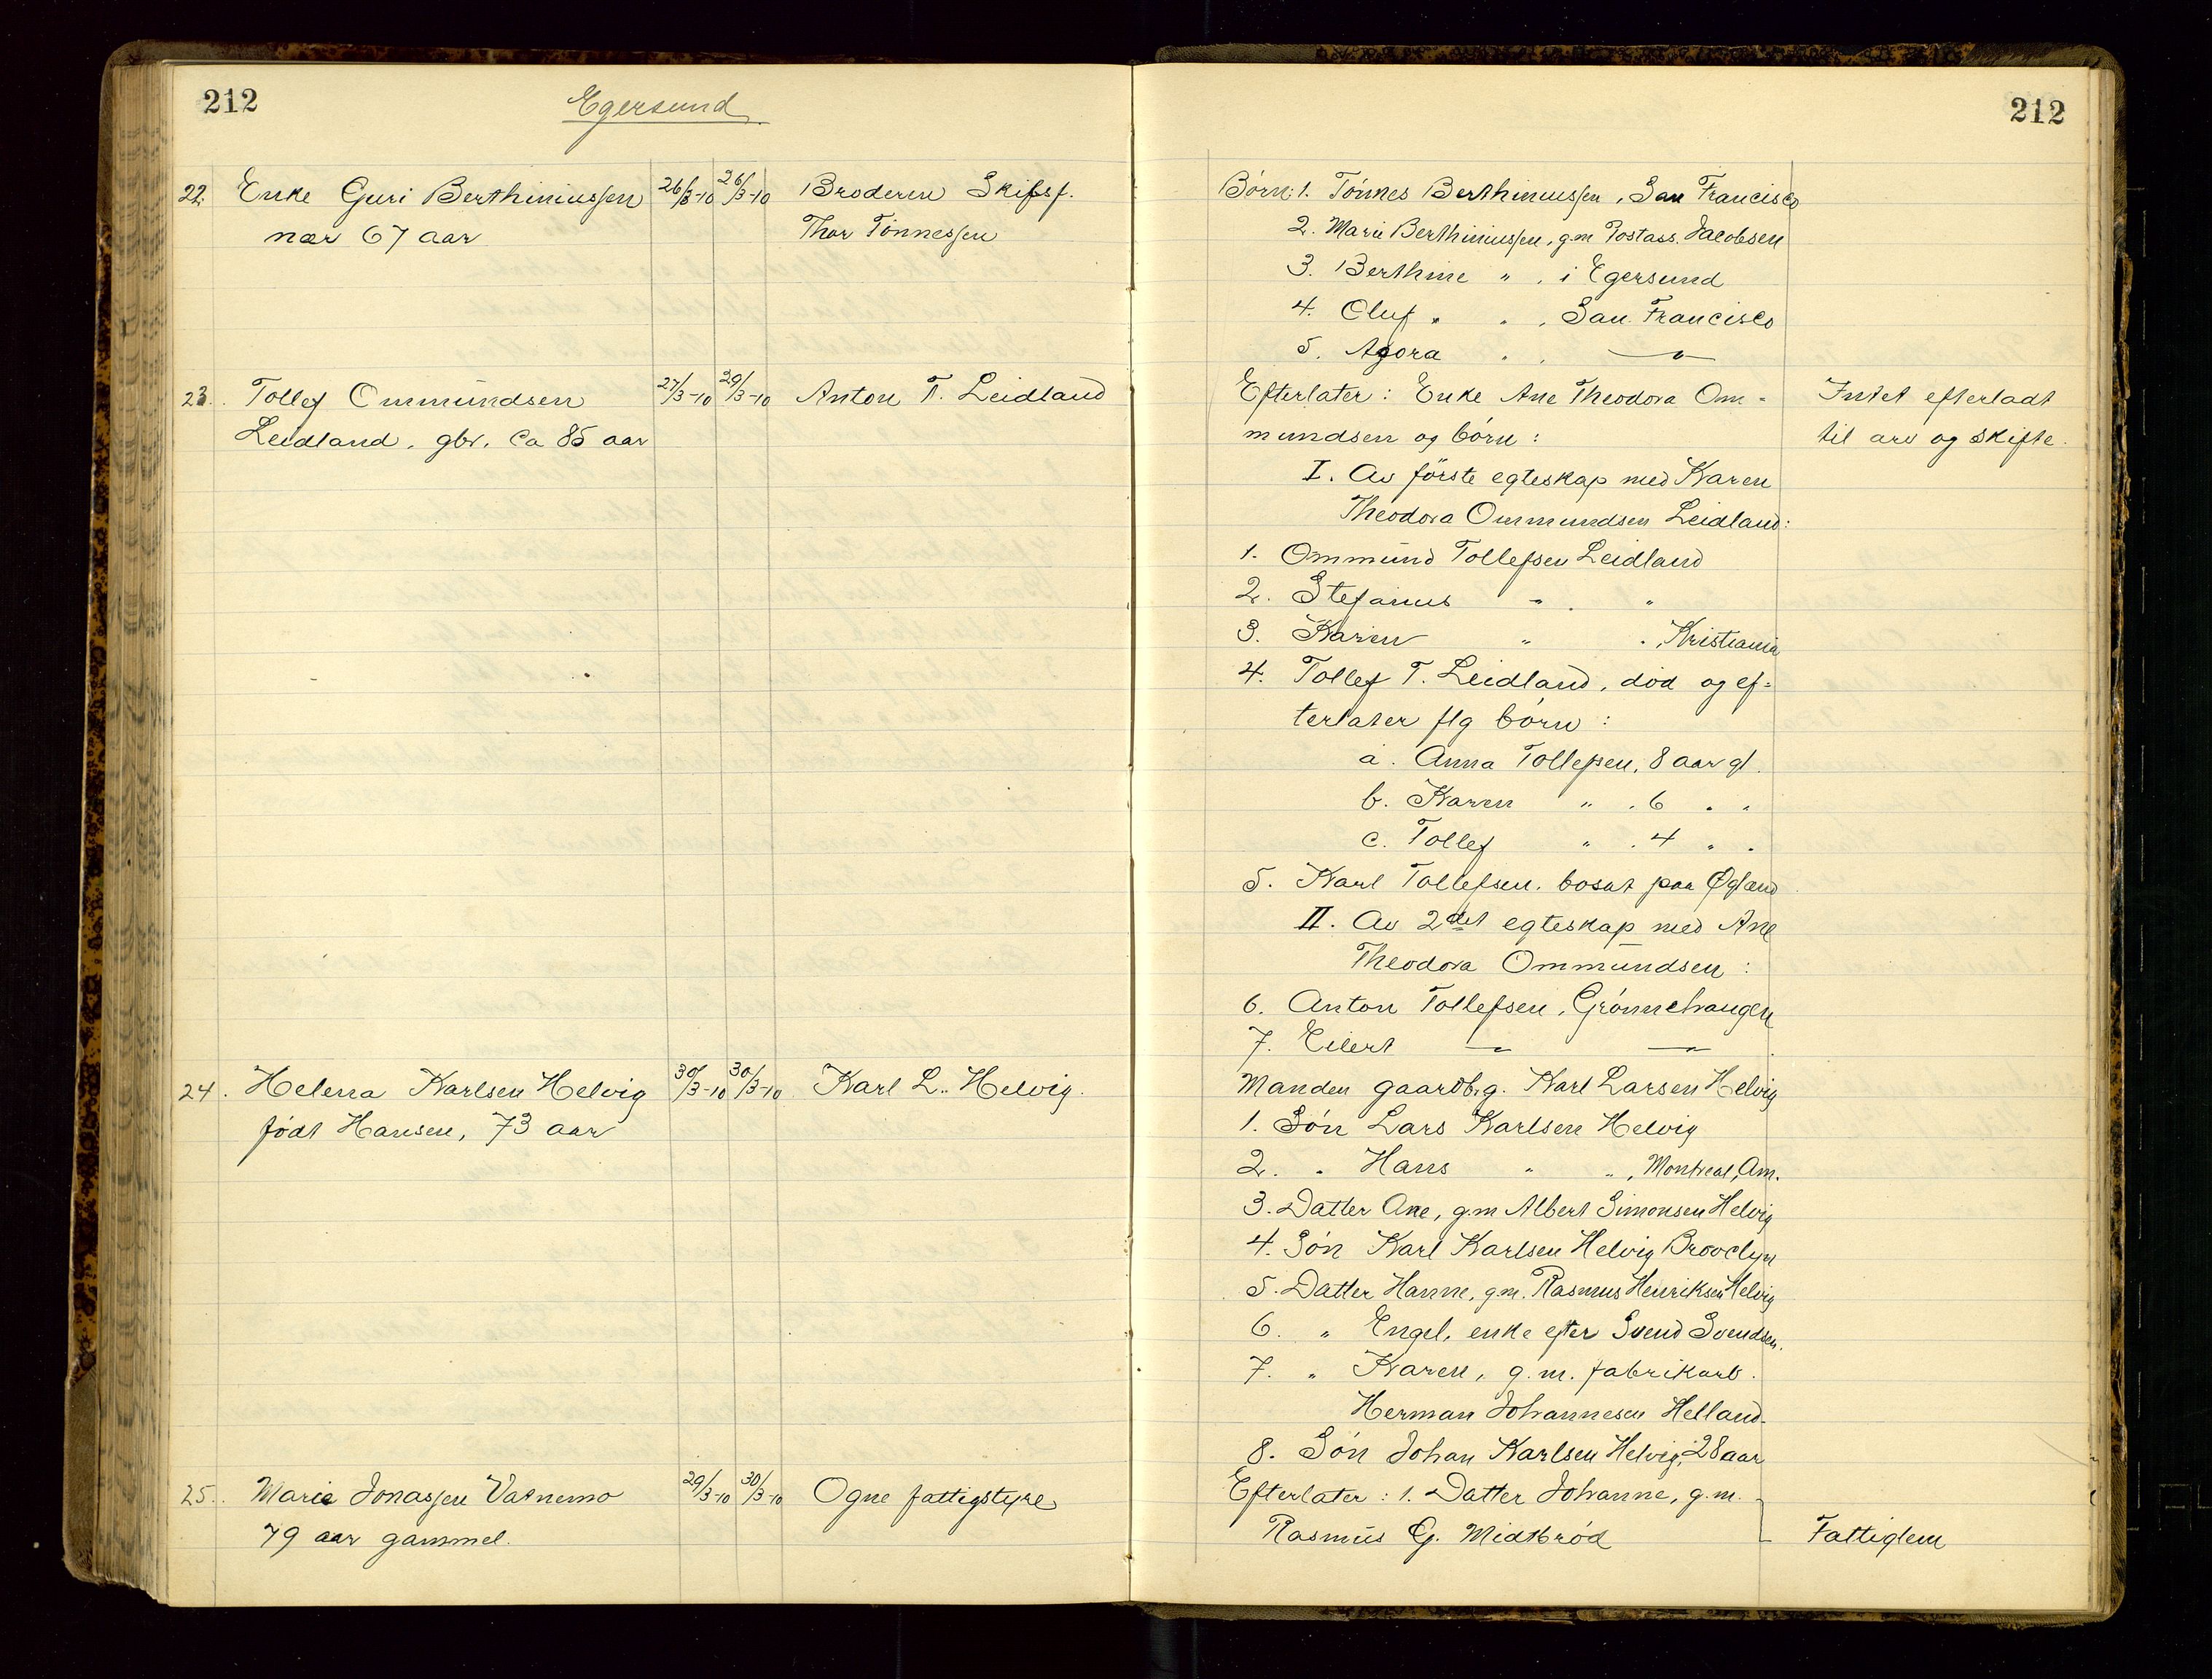 212
Egersund
22. Enke Guri Berthiniussen 26/3-10 26/3-10 Broderen Skibsf.
nær 67 aar Thor Tønnessen
23. Tollef Ommundsen 27/3-10 29/3-10 Anton T. Leidland
Leidland, gbr. ca 85 aar
24. Helena Karlsen Helvig 30/3-10 30/3-10 Karl L. Helvig.
født Hansen, 73 aar
25. Marie Jonassen Vatnemo 29/3-10 30/3-10 Ogne fattigstyre
79 aar gammel.
212
Børn: 1. Tønnes Berthiniussen, San Francisco
2. Marie Berthiniussen, g.m Postass. Jacobsen
3. Berthine " , i Egersund
4. Oluf " " , San Francisco
5. Agora " , — " —
Efterlater: Enke Ane Theodora Om- Intet efterladt
mundsen og børn: til arv og skifte.
I. Av første egteskap med Karen
Theodora Ommundsen Leidland:
1. Ommund Tollefsen Leidland
2. Stefanus " . "
3. Karen " " , Kristiania
4. Tollef T. Leidland, død og ef-
terlater flg børn:
a. Anna Tollefsen, 8 aar gl.
b. Karen " , 6 " "
c. Tollef " , 4 " "
5. Karl Tollefsen, bosat paa Øglænd
II. Av 2det egteskap med Ane
Theodora Ommundsen:
6. Anton Tollefsen, Grønnehaugen
7. Eilert — " — — " —
Manden gaardbrg. Karl Larsen Helvig
1. Søn Lars Karlsen Helvig
2. " Hans " " , Montreal, Am.
3. Datter Ane, g.m Albert Simonsen Helvig
4. Søn Karl Karlsen Helvig Brooclyn
5. Datter Hanne, g.m. Rasmus Henriksen Helvig
6. " Engel, enke efter Svend Svendsen.
7. " Karen, g.m. fabrikarb.
Herman Johannesen Helland.
8. Søn Johan Karlsen Helvig, 28 aar
Efterlater: 1. Datter Johanne, g.m.
Rasmus G. Midtbrød Fattiglem